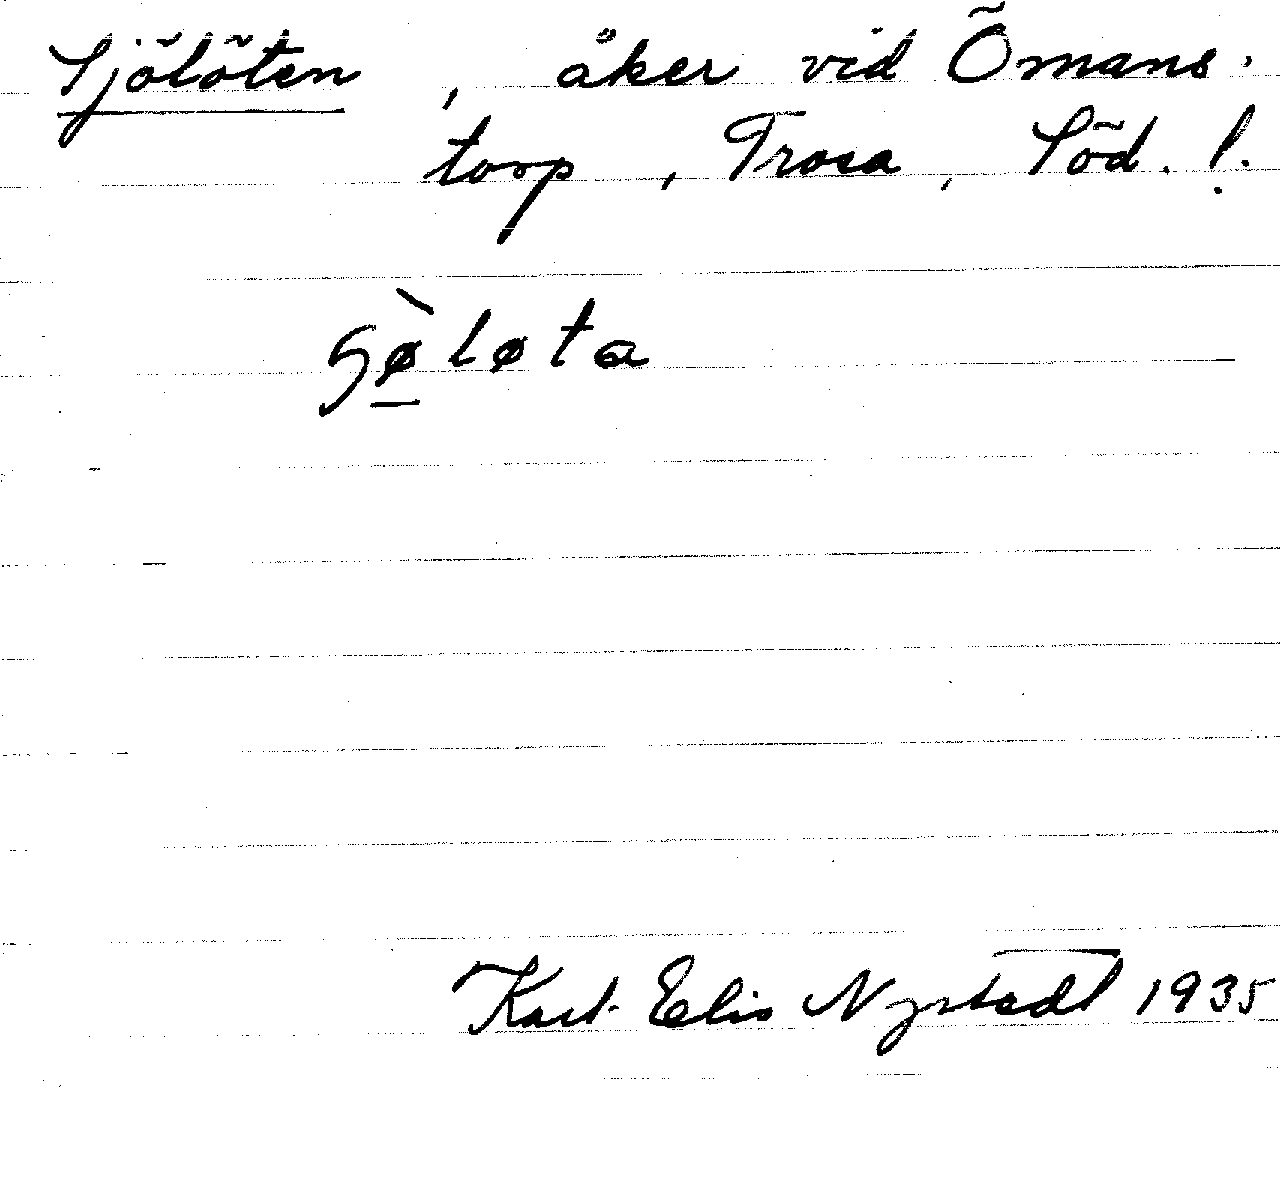 Sjölöten, åker vid Ömans-
torp, Trosa, Söd. !.
ʃø̲̀løta
Karl-Elis Nystedt 1935